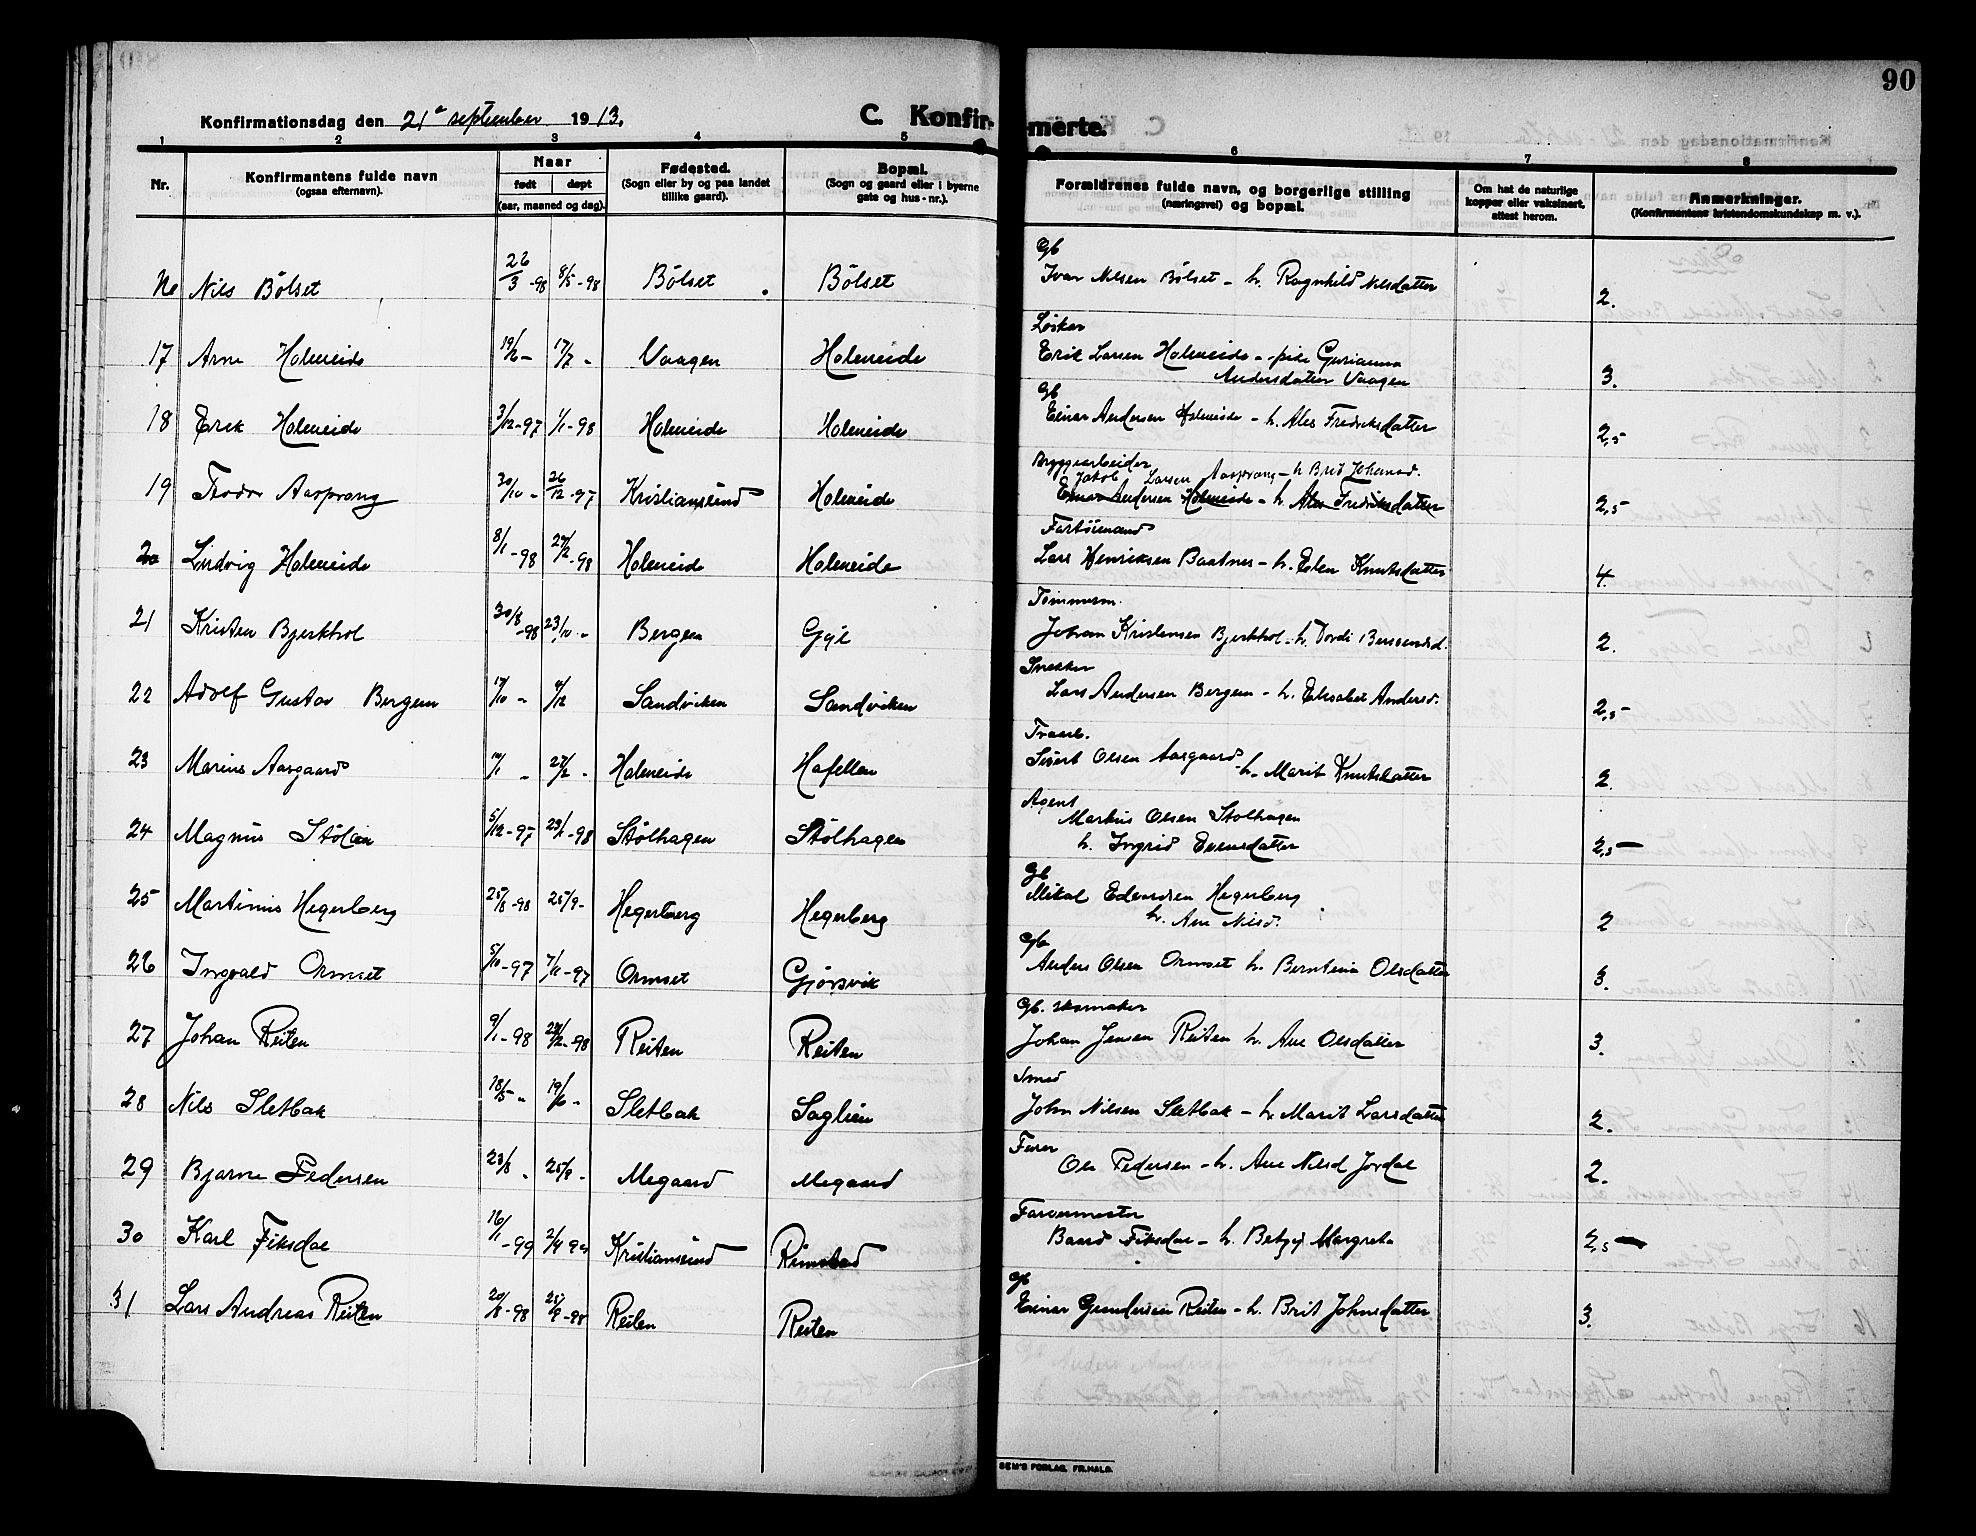 90
Konfirmationsdag den 21de september 1913.
C. Konfirmerte.
1 2 3 4 5 6 7 8
Nr.
Konfirmantens fulde navn
(ogsaa efternavn).
Naar
født døpt
(aar, maaned og dag).
Fødested.
(Sogn eller by og paa landet
tillike gaard).
Bopæl.
(Sogn og gaard eller i byerne
gate og hus-nr.).
Forældrenes fulde navn, og borgerlige stilling
(næringsvei) og bopæl.
Om hat de naturlige
kopper eller vaksinert,
attest herom.
Anmerkninger.
(Konfirmantens kristendomskundskap m. v.).
Gb
16 Nils Bølset 26/3 -98 8/5 -98 Bølset Bølset Ivar Nilsen Bølset - h. Ragnhild Nilsdatter 2.
Løskar
17 Arne Holmeide 17/7 - Vaagen Holmeide Erik Larsen Holmeide - pike Gurianna
Andersdatter Vaagen 3.
Gb
18 Erik Holmeide 3/12 -97 1/1 -98 Holmeide Holmeide Einar Andersen Holmeide - h. Ales Fredriksdatter 2,5
Bryggearbeider
Jakob Larsen Aasprang - h Brit Johansd.
19 Teodor Aasprang 30/10 - 26/12 -97 Kristianssund Holmeide Einar Andersen Holmeide - h. Ales Fredriksdatter 2,5
Fartøimand
20 Ludvig Holmeide 8/1 -98 27/2 -98 Holmeide Holmeide Lars Henriksen Baatnes - h. Elen Knutsdatter 4.
Tømmerm.
21 Kristen Bjerkhol 30/8 -98 23/10 - Bergem Gyl Johan Kristensen Bjerkhol - h. Dordi 2.
Snekker
22 Adolf Gustav Bergem 17/10 - 4/12 Sandviken Sandviken Lars Andersen Bergem - h. Elisabet Andersd. 2,5
Traarb.
23 Marius Aasgaard 27/2 - Holmeide Hafellen Sivert Olsen Aasgaard - h. Marit Knutsdatter 2.
Agent
Markus Olsen Stølhagen
24 Magnus Stølan 5/12 -97 23/1 -98 Stølhagen Stølhagen h. Ingrid Evensdatter 2,5
Gb
25 Martinus Hegerberg 25/8 -98 25/9 - Hegerberg Hegerberg Mikal Edvardsen Hegerberg
h. Ane Nilsd. 2
Gb
26 Ingvald Ormset 5/10 -97 7/11 -97 Ormset Gjørsvik Anders Olsen Ormset h. Berntina Olsdatter 3.
Gb. skomaker
27 Johan Reiten 9/1 -98 27/2 -98 Reiten Reiten Johan Jensen Reiten h. Ane Olsdatter 3.
Smed
28 Nils Sletbak 18/5 - 19/6 - Sletbak Saglien John Nilsen Sletbak - h Marit Larsdatter 2.
Furer
29 Bjarne Pedersen 23/8 - 25/9 - Megaard Megaard Ole Pedersen - h. Ane Nilsd Jordal 2.
Farvermester
30 Karl Fiksdal 16/1 -99 2/4 99 Kristianssund Rimstad Baard Fiksdal - h. Betzy Margrete 2,5
Gb
31 Lars Andreas Reiten 20/8 -98 25/9 -98 Reiten Reiten Einar Gundersen Reiten - h. Brit Johnsdatter 3.
SEM'S FORLAG, FR.HALD.